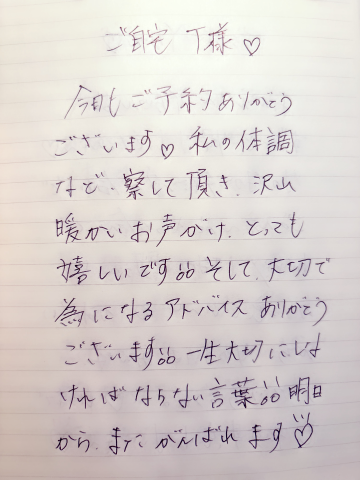 ご自宅 T様♡
今日も ご予約ありがとう
ございます♡ 私の体調
など、察して頂き、沢山
暖かいお声がけ、とっても
嬉しいです。。そして、大切で
為になるアドバイス ありがとう
ございます。。一生大切にしな
ければならない言葉。。明日
から、また がんばれます♡